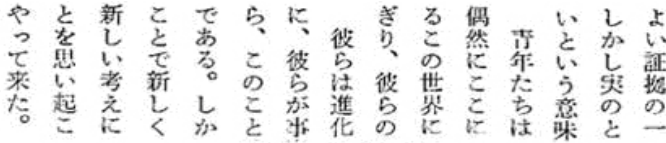 よい証拠の一
しかし実のと
いという意味
青年たちは
偶然にここに
るこの世界に
ぎり、彼らの
彼らは進化
に、彼らが事
ら、このこと
である。しか
ことで新しく
新しい考えに
とを思い起こ
やって来た。